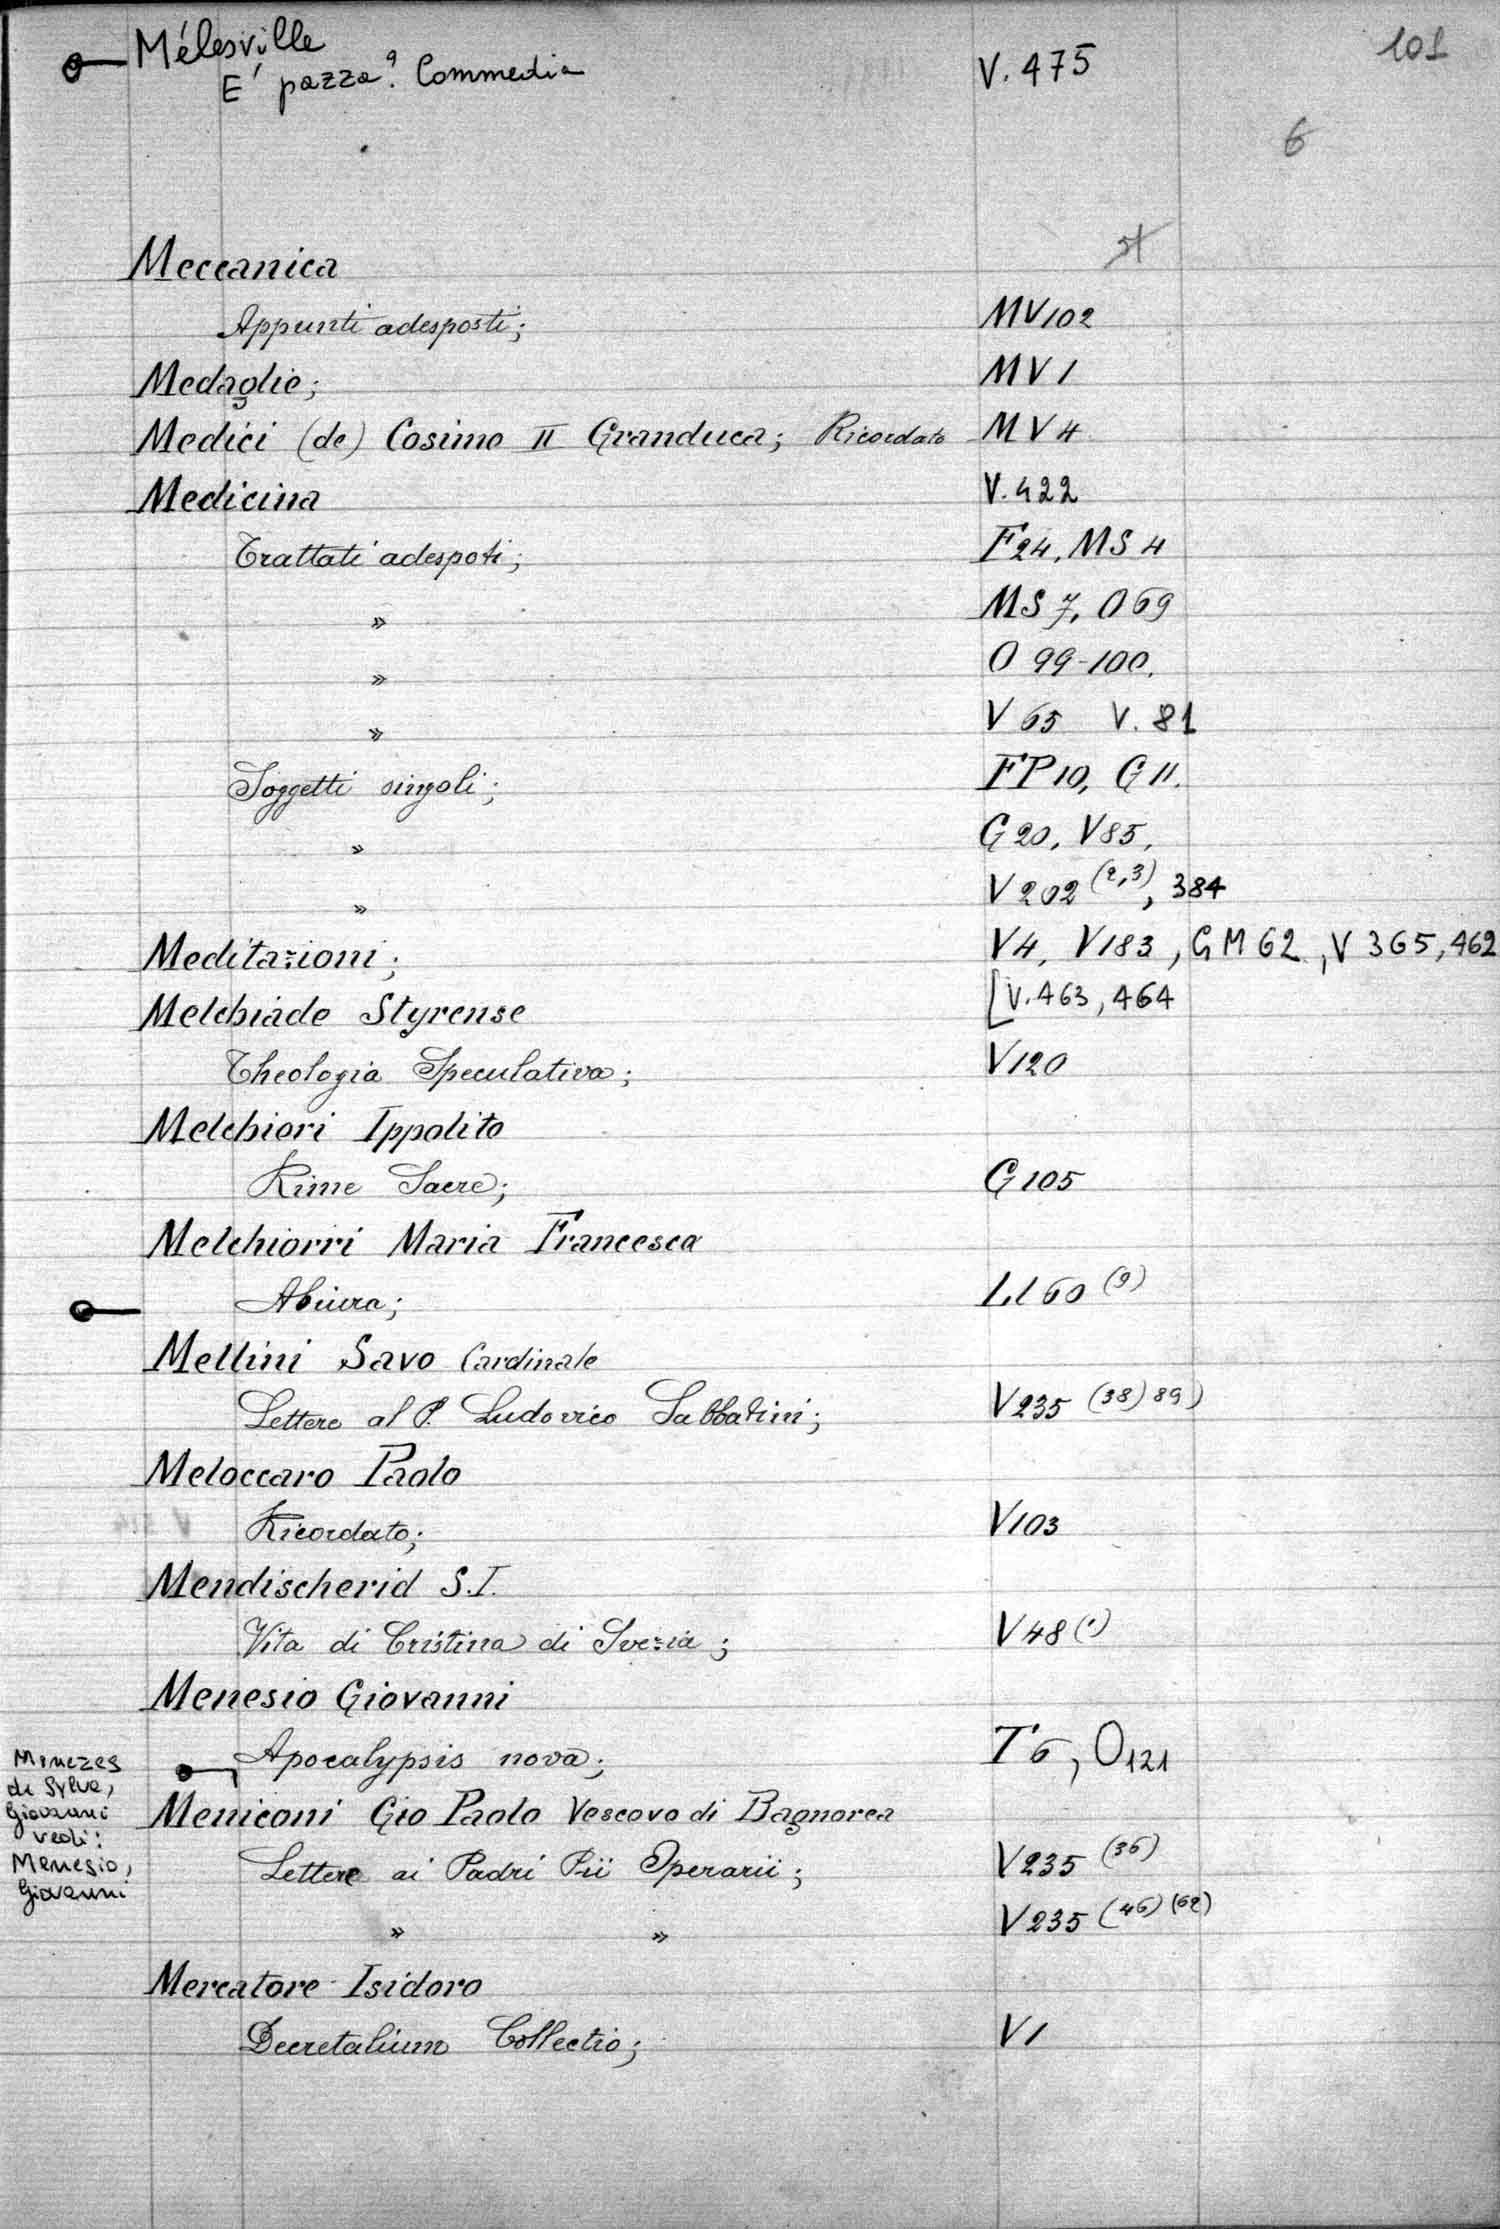 101
Mélesville
E' pazza? Commedia V. 475
6
Meccanica
Appunti adesposti; MV102
Medaglie; MV1
Medici (de) Cosimo II Granduca; Ricordato MV4
Medicina V.422
Trattati adespoti; F24, MS4
» MS7, O69
» O 99-100.
» V65 V. 81
Soggetti singoli; FP10, G11.
» G20, V85,
» V202 (2,3), 384
Meditazioni; V4, V183, GM62, V365, 462
[V. 463, 464
Melchiade Styrense
Theologia Speculativa; V120
Melchiori Ippolito
Rime Sacre; G105
Melchiorri Maria Francesca
Abiura; LI60 (9)
Mellini Savo Cardinale
Lettere al P. Ludovico Sabbatini; V235 (38) 89)
Meloccaro Paolo
Ricordato; V103
Mendischerid S.I.
Vita di Cristina di Svezia; V48 (1)
Menesio Giovanni
Apocalypsis nova; T6, O121
Menezes
de Sylva,
Giovanni
vedi:
Menesio,
Giovanni
Meniconi Gio Paolo Vescovo di Bagnorea
Lettere ai Padri Pii Operarii; V235 (36)
» » V235 (46) (62)
Mercatore Isidoro
Decretalium Collectio; V1